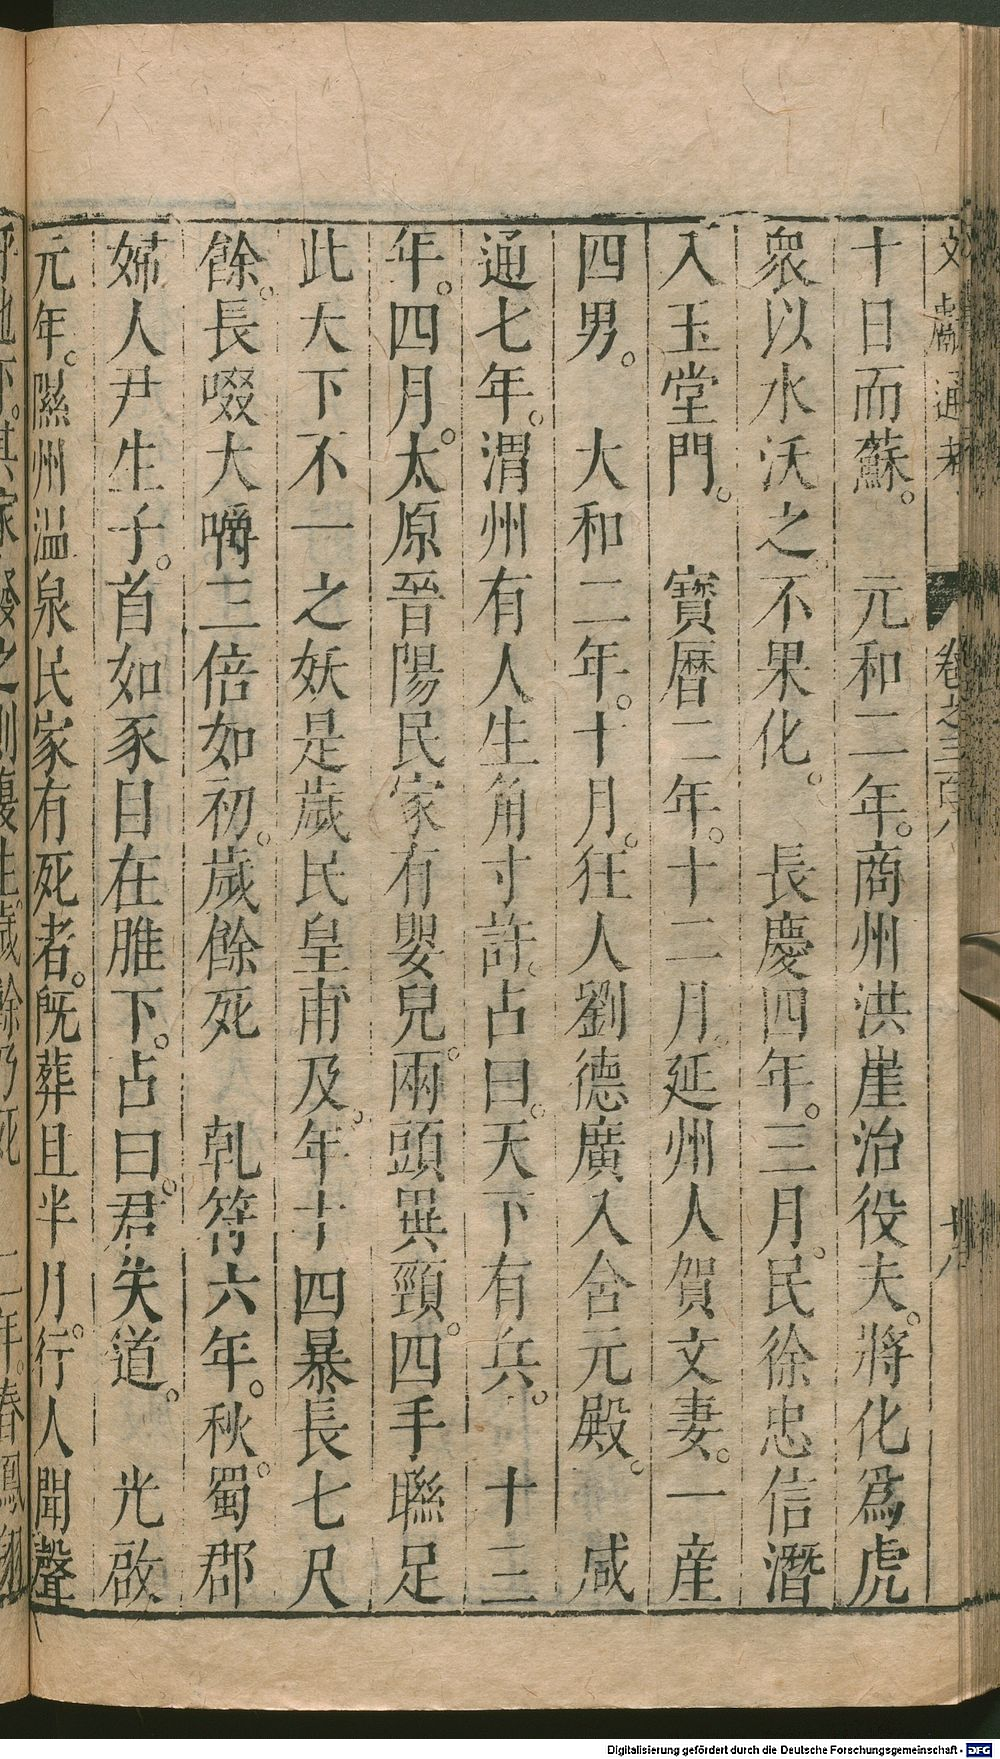 文獻通考 卷之三百八 十八
十日而蘇。 元和二年。商州洪崖治役夫。將化爲虎
衆以水沃之。不果化。 長慶四年。三月。民徐忠信潛
入玉堂門。 寳曆二年。十二月。延州人賀文妻。一產
四男。 大和二年。十月。狂人劉德廣入含元殿。 咸
通七年。渭州有人。生角寸許。占曰。天下有兵。 十三
年。四月。太原晉陽民家有嬰兒。兩頭異頸。四手聯足
此天下不一之妖是歲民皇甫及。年十四暴長七尺
餘。長啜大嚼三倍如初。歲餘死 乹符六年。秋。蜀郡
婦人尹生子。首如豕目在脽下。占曰。君失道。 光啟
元年。隰州温泉民家有死者。旣葬且半月。行人聞聲
呼地下。其家發之則復生。歲餘乃死 二年。春鳳翔
Digitalisierung gefördert durch die Deutsche Forschungsgemeinschaft - DFG